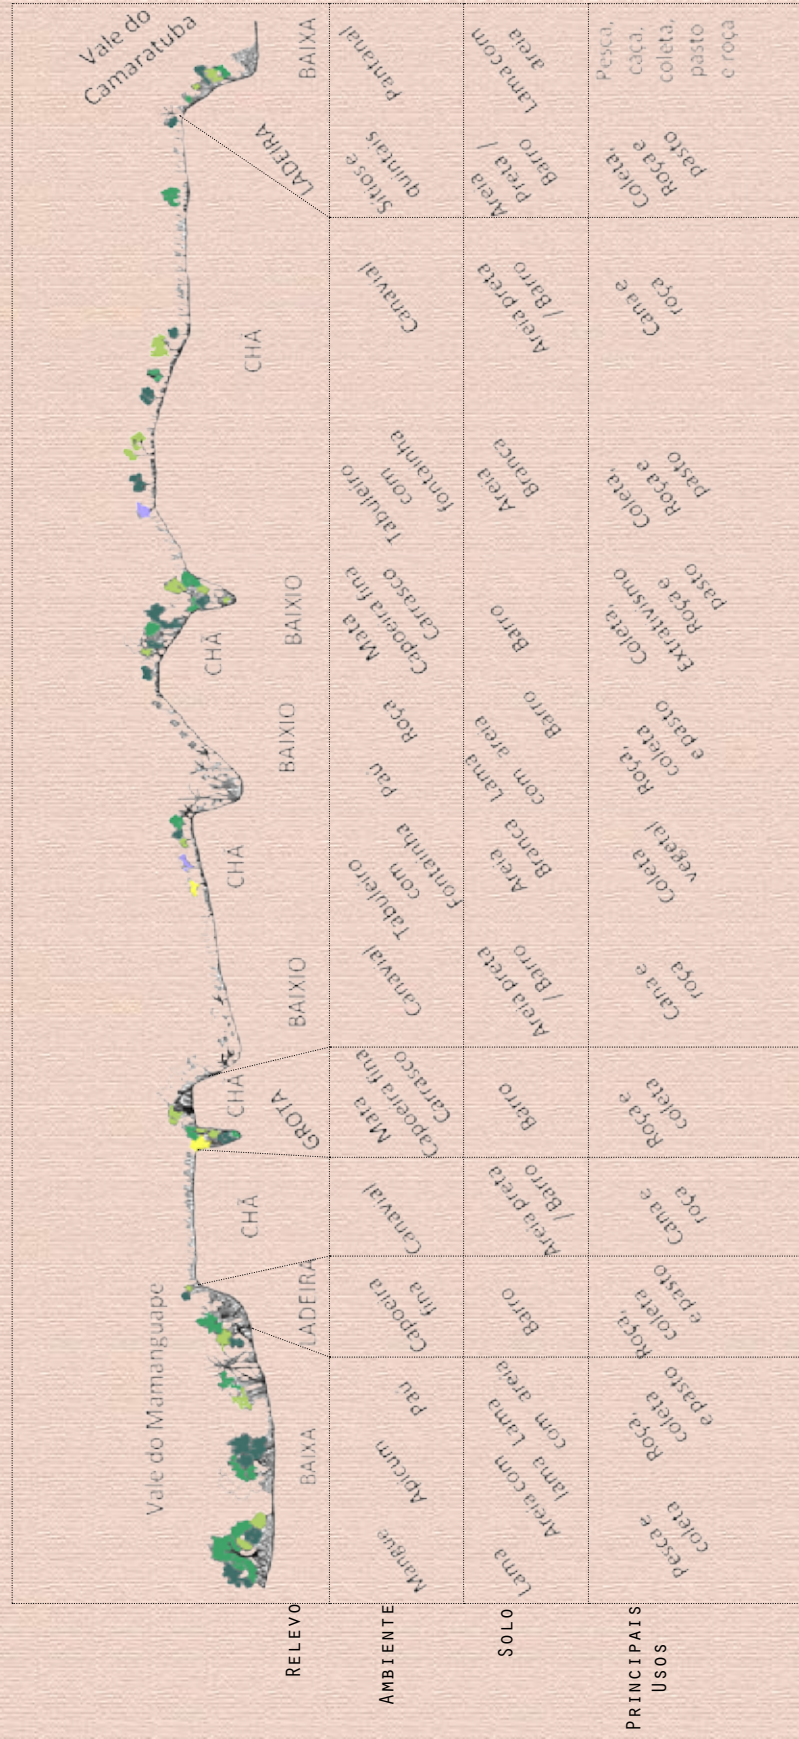 Vale do Mamanguape
Vale do
Camaratuba
RELEVO
BAIXA
LADEIRA
CHÃ
GROTA
CHÃ
BAIXIO
CHÃ
BAIXIO
CHÃ
BAIXIO
CHÃ
LADEIRA
BAIXA
AMBIENTE
Mangue
Apicum
Pau
Capoeira
fina
Canavial
Mata
Capoeira fina
Carrasco
Canavial
Tabuleiro
com
Fontainha
Pau
Roça
Mata
Capoeira fina
Carrasco
Tabuleiro
com
fontainha
Canavial
Sítios e
quintais
Pantanal
SOLO
Lama
Areia com
lama
Lama
com areia
Barro
Areia preta
/ Barro
Barro
Areia preta
/ Barro
Areia
Branca
Lama
com areia
Barro
Barro
Areia
Branca
Areia preta
/ Barro
Areia
Preta /
Barro
Lama com
areia
PRINCIPAIS
USOS
Pesca e
coleta
Roça,
coleta
e pasto
Roça,
coleta
e pasto
Cana e
roça
Roça e
coleta
Cana e
roça
Coleta
vegetal
Roça,
coleta
e pasto
Coleta,
Extrativismo
Roça e
pasto
Coleta,
Roça e
pasto
Cana e
roça
Coleta,
Roça e
pasto
Pesca,
caça,
coleta,
pasto
e roça